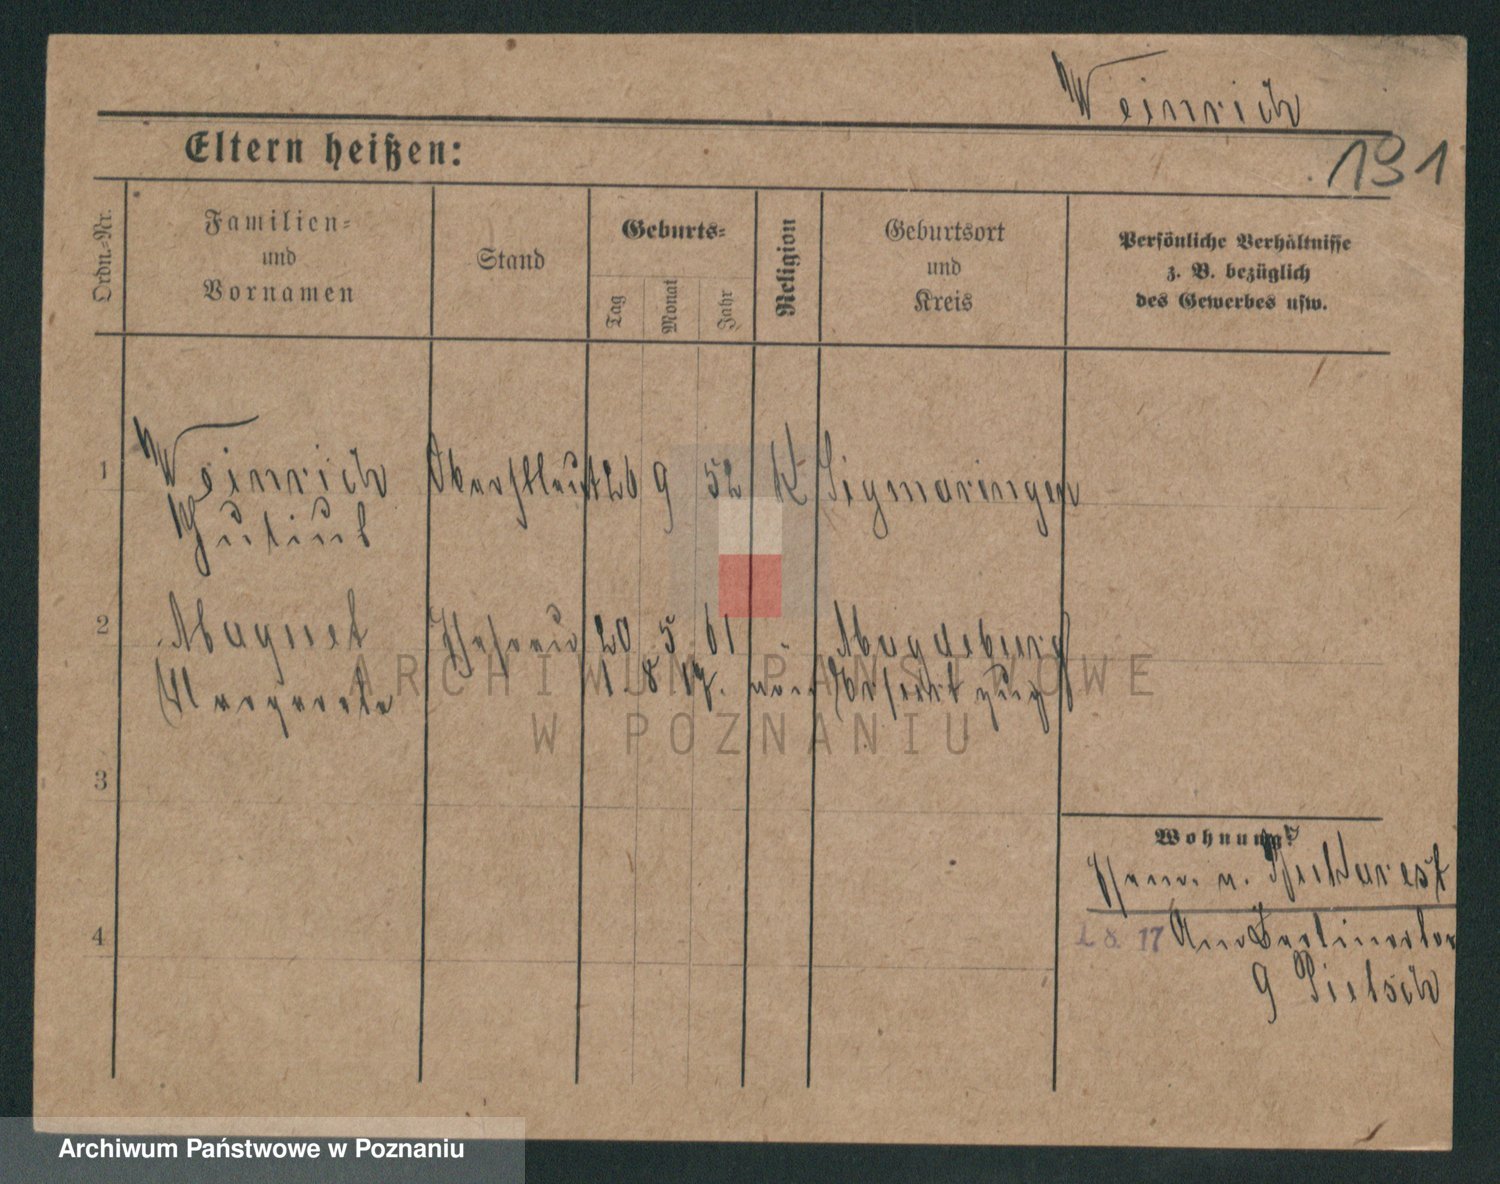 Weinrich
Eltern heißen:
191
Ordn.-Nr.
Familien-
und
Vornamen
Stand
Geburts-
Tag
Monat
Jahr
Religion
Geburtsort
und
Kreis
Persönliche Verhältnisse
z. B. bezüglich
des Gewerbes usw.
1
Weinrich Oberstleut 26 9 52 K Sigmaringen
Julius
2
Magnet Ehefrau 20 5 61 " Magdeburg
Margarete 1. 8 17. von
3
Wohnung:
4
1 8 17 Am Berlinertor
9 Pietsch
ARCHIWUM PAŃSTWOWE
W POZNANIU
Archiwum Państwowe w Poznaniu